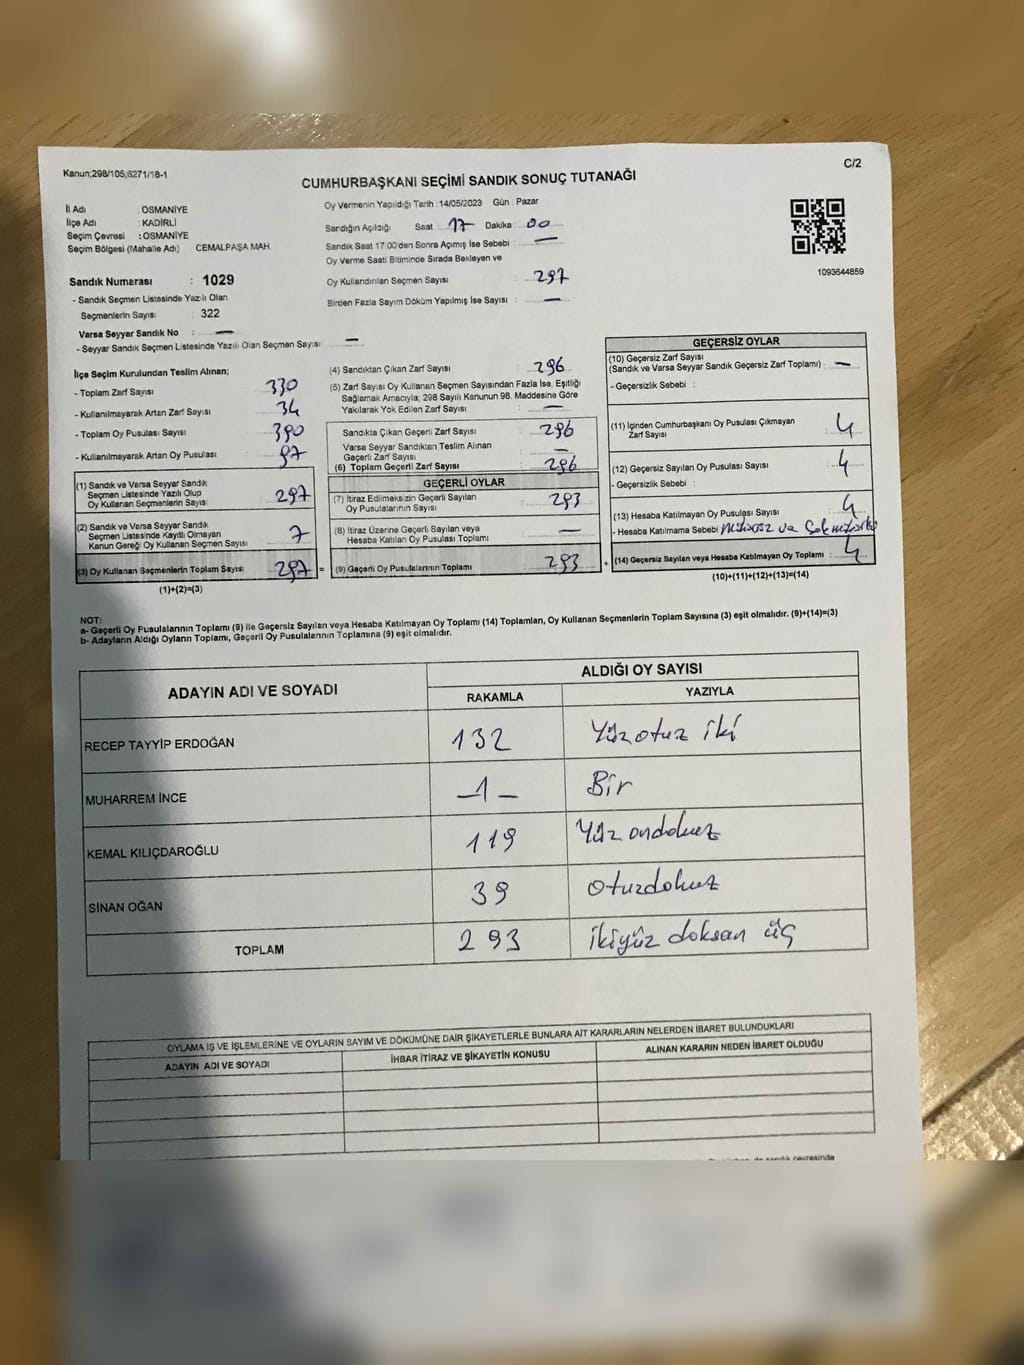 Kanun;298/105;6271/18-1
C/2
CUMHURBAŞKANI SEÇİMİ SANDIK SONUÇ TUTANAĞI
İl Adı : OSMANİYE
İlçe Adı : KADİRLİ
Seçim Çevresi : OSMANİYE
Seçim Bölgesi (Mahalle Adı) CEMALPAŞA MAH.
Sandık Numarası : 1029
- Sandık Seçmen Listesinde Yazılı Olan
Seçmenlerin Sayısı : 322
Varsa Seyyar Sandık No : —
- Seyyar Sandık Seçmen Listesinde Yazılı Olan Seçmen Sayısı : —
Oy Vermenin Yapıldığı Tarih : 14/05/2023 Gün : Pazar
Sandığın Açıldığı Saat : 17 Dakika : 00
Sandık Saat 17:00'den Sonra Açımış İse Sebebi : —
Oy Verme Saati Bitiminde Sırada Bekleyen ve
Oy Kullandırılan Seçmen Sayısı : 297
Birden Fazla Sayım Döküm Yapılmış İse Sayısı : —
1093644859
İlçe Seçim Kurulundan Teslim Alınan;
- Toplam Zarf Sayısı : 330
- Kullanılmayarak Artan Zarf Sayısı : 34
- Toplam Oy Pusulası Sayısı : 390
- Kullanılmayarak Artan Oy Pusulası : 97
(1) Sandık ve Varsa Seyyar Sandık
Seçmen Listesinde Yazılı Olup
Oy Kullanan Seçmenlerin Sayısı : 297
(2) Sandık ve Varsa Seyyar Sandık
Seçmen Listesinde Kayıtlı Olmayan
Kanun Gereği Oy Kullanan Seçmen Sayısı : 7
(3) Oy Kullanan Seçmenlerin Toplam Sayısı : 297 =
(1)+(2)=(3)
(4) Sandıktan Çıkan Zarf Sayısı : 296
(5) Zarf Sayısı Oy Kullanan Seçmen Sayısından Fazla İse, Eşitliği
Sağlamak Amacıyla; 298 Sayılı Kanunun 98. Maddesine Göre
Yakılarak Yok Edilen Zarf Sayısı : —
Sandıkta Çıkan Geçerli Zarf Sayısı : 296
Varsa Seyyar Sandıktan Teslim Alınan
Geçerli Zarf Sayısı : —
(6) Toplam Geçerli Zarf Sayısı : 296
GEÇERLİ OYLAR
(7) İtiraz Edilmeksizin Geçerli Sayılan
Oy Pusulalarının Sayısı : 293
(8) İtiraz Üzerine Geçerli Sayılan veya
Hesaba Katılan Oy Pusulası Toplamı : —
(9) Geçerli Oy Pusulalarının Toplamı : 293 +
GEÇERSİZ OYLAR
(10) Geçersiz Zarf Sayısı
(Sandık ve Varsa Seyyar Sandık Geçersiz Zarf Toplamı) : —
- Geçersizlik Sebebi :
(11) İçinden Cumhurbaşkanı Oy Pusulası Çıkmayan
Zarf Sayısı : 4
(12) Geçersiz Sayılan Oy Pusulası Sayısı : 4
- Geçersizlik Sebebi :
(13) Hesaba Katılmayan Oy Pusulası Sayısı : 4
- Hesaba Katılmama Sebebi : Mühürsüz ve Çok
(14) Geçersiz Sayılan veya Hesaba Katılmayan Oy Toplamı : 4
(10)+(11)+(12)+(13)=(14)
NOT:
a- Geçerli Oy Pusulalarının Toplamı (9) ile Geçersiz Sayılan veya Hesaba Katılmayan Oy Toplamı (14) Toplamları, Oy Kullanan Seçmenlerin Toplam Sayısına (3) eşit olmalıdır. (9)+(14)=(3)
b- Adayların Aldığı Oyların Toplamı, Geçerli Oy Pusulalarının Toplamına (9) eşit olmalıdır.
ADAYIN ADI VE SOYADI
ALDIĞI OY SAYISI
RAKAMLA YAZIYLA
RECEP TAYYİP ERDOĞAN 132 Yüzotuz iki
MUHARREM İNCE —1— Bir
KEMAL KILIÇDAROĞLU 119 Yüz ondokuz
SİNAN OĞAN 39 Otuzdokuz
TOPLAM 293 ikiyüz doksan üç
OYLAMA İŞ VE İŞLEMLERİNE VE OYLARIN SAYIM VE DÖKÜMÜNE DAİR ŞİKAYETLERLE BUNLARA AİT KARARLARIN NELERDEN İBARET BULUNDUKLARI
ADAYIN ADI VE SOYADI İHBAR İTİRAZ VE ŞİKAYETİN KONUSU ALINAN KARARIN NEDEN İBARET OLDUĞU